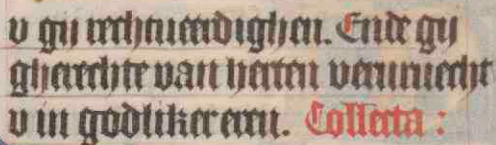 v gij rechtuerdighen. Ende gij
gherechte van herten verurnecht
v in godliker eren. Collecta :